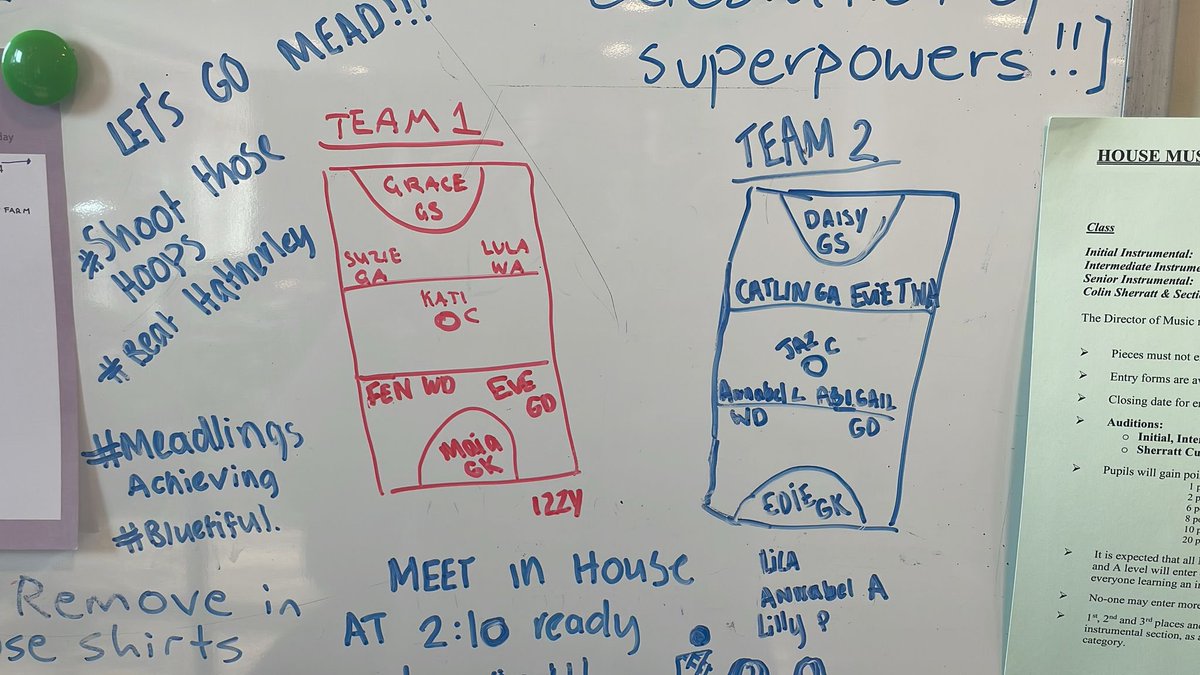 superpowers!!]
LET'S GO MEAD!!!
#Shoot those
HOOPS
#Beat Hatherley
#Meadlings
Achieving
#Bluetiful.
TEAM 1
GRACE
GS
SUZIE
GA
LULA
WA
KATI
C
FEN WD
EVE
GD
Maia
GK
IZZY
TEAM 2
DAISY
GS
CATLIN GA EVIE T WA
JAZ C
Annabel L ABIGAIL
WD
GD
EDIE GK
LiLA
Annabel A
Lilly ?
MEET in HOUSE
AT 2:10 ready
Remove in
shirts
FARM
HOUSE
Class
Initial Instrumental:
Intermediate
Senior Instrumental:
Colin Sherratt &
The Director of Music
Pieces must not
Entry forms are
Closing date for
Auditions:
Initial,
Sherratt
Pupils will gain
It is expected that all
and A level will enter
everyone learning an
No-one may enter more
1st, 2nd and 3rd places and
instrumental section, as
category.